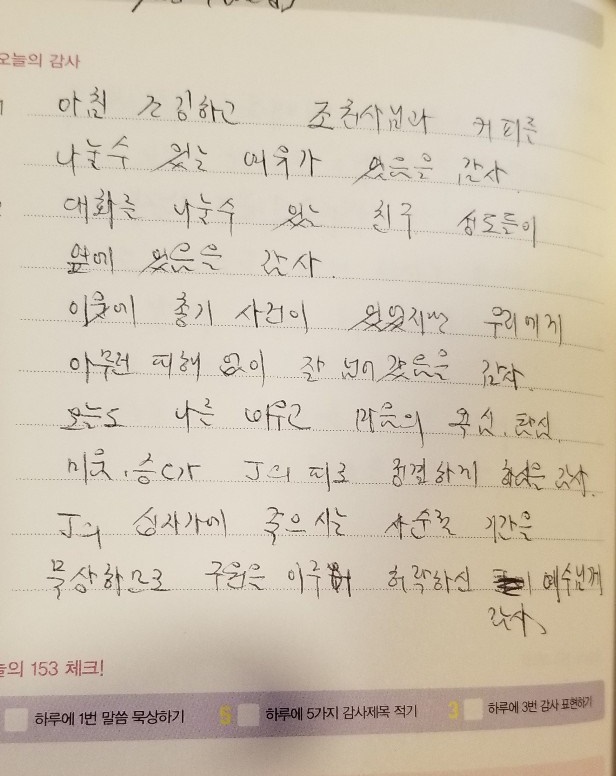 오늘의 감사
아침 조깅하고 조천사님과 커피를
나눌수 있는 여유가 있음을 감사.
대화를 나눌수 있는 친구 성도들이
옆에 있음을 감사.
이웃에 총기 사건이 있었지만 우리에게
아무런 피해 없이 잘 넘어갔음을 감사.
오늘도 나를 비우고 마음의 욕심, 탐심,
미움, 증오가 J의 피로 정결하게 하심을 감사.
J의 십자가에 죽으시는 사순절 기간을
묵상하므로 구원을 이루며 허락하신 예수님께
감사.
늘의 153 체크!
하루에 1번 말씀 묵상하기 5 하루에 5가지 감사제목 적기 3 하루에 3번 감사 표현하기